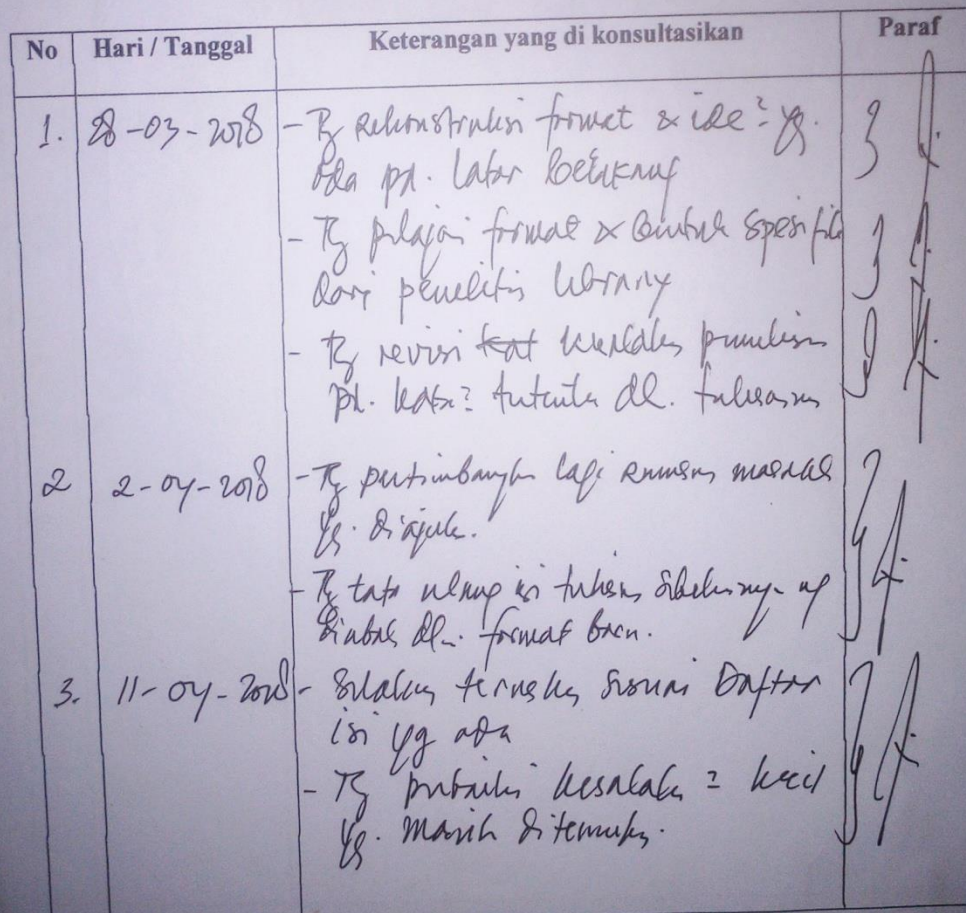 No Hari / Tanggal Keterangan yang di konsultasikan Paraf
1. 28-03-2018 - Tlg rekonstruksi format & ide² yg.
ada pd. latar belakang
- Tlg pelajari format & bentuk spesifik
dari penelitian library
- Tlg revisi kat kesalahan penulisan
pd. kata² tertentu dl. tulisannya
2 2-04-2018 - Tlg pertimbangkan lagi rumusan masalah
yg. diajukan.
- Tlg tata ulang isi tulisan sebelumnya
diubah dlm. format baru.
3. 11-04-2018 - Silakan teruskan sesuai Daftar
isi yg ada
- Tlg perbaiki kesalahan² kecil
yg. masih ditemukan.